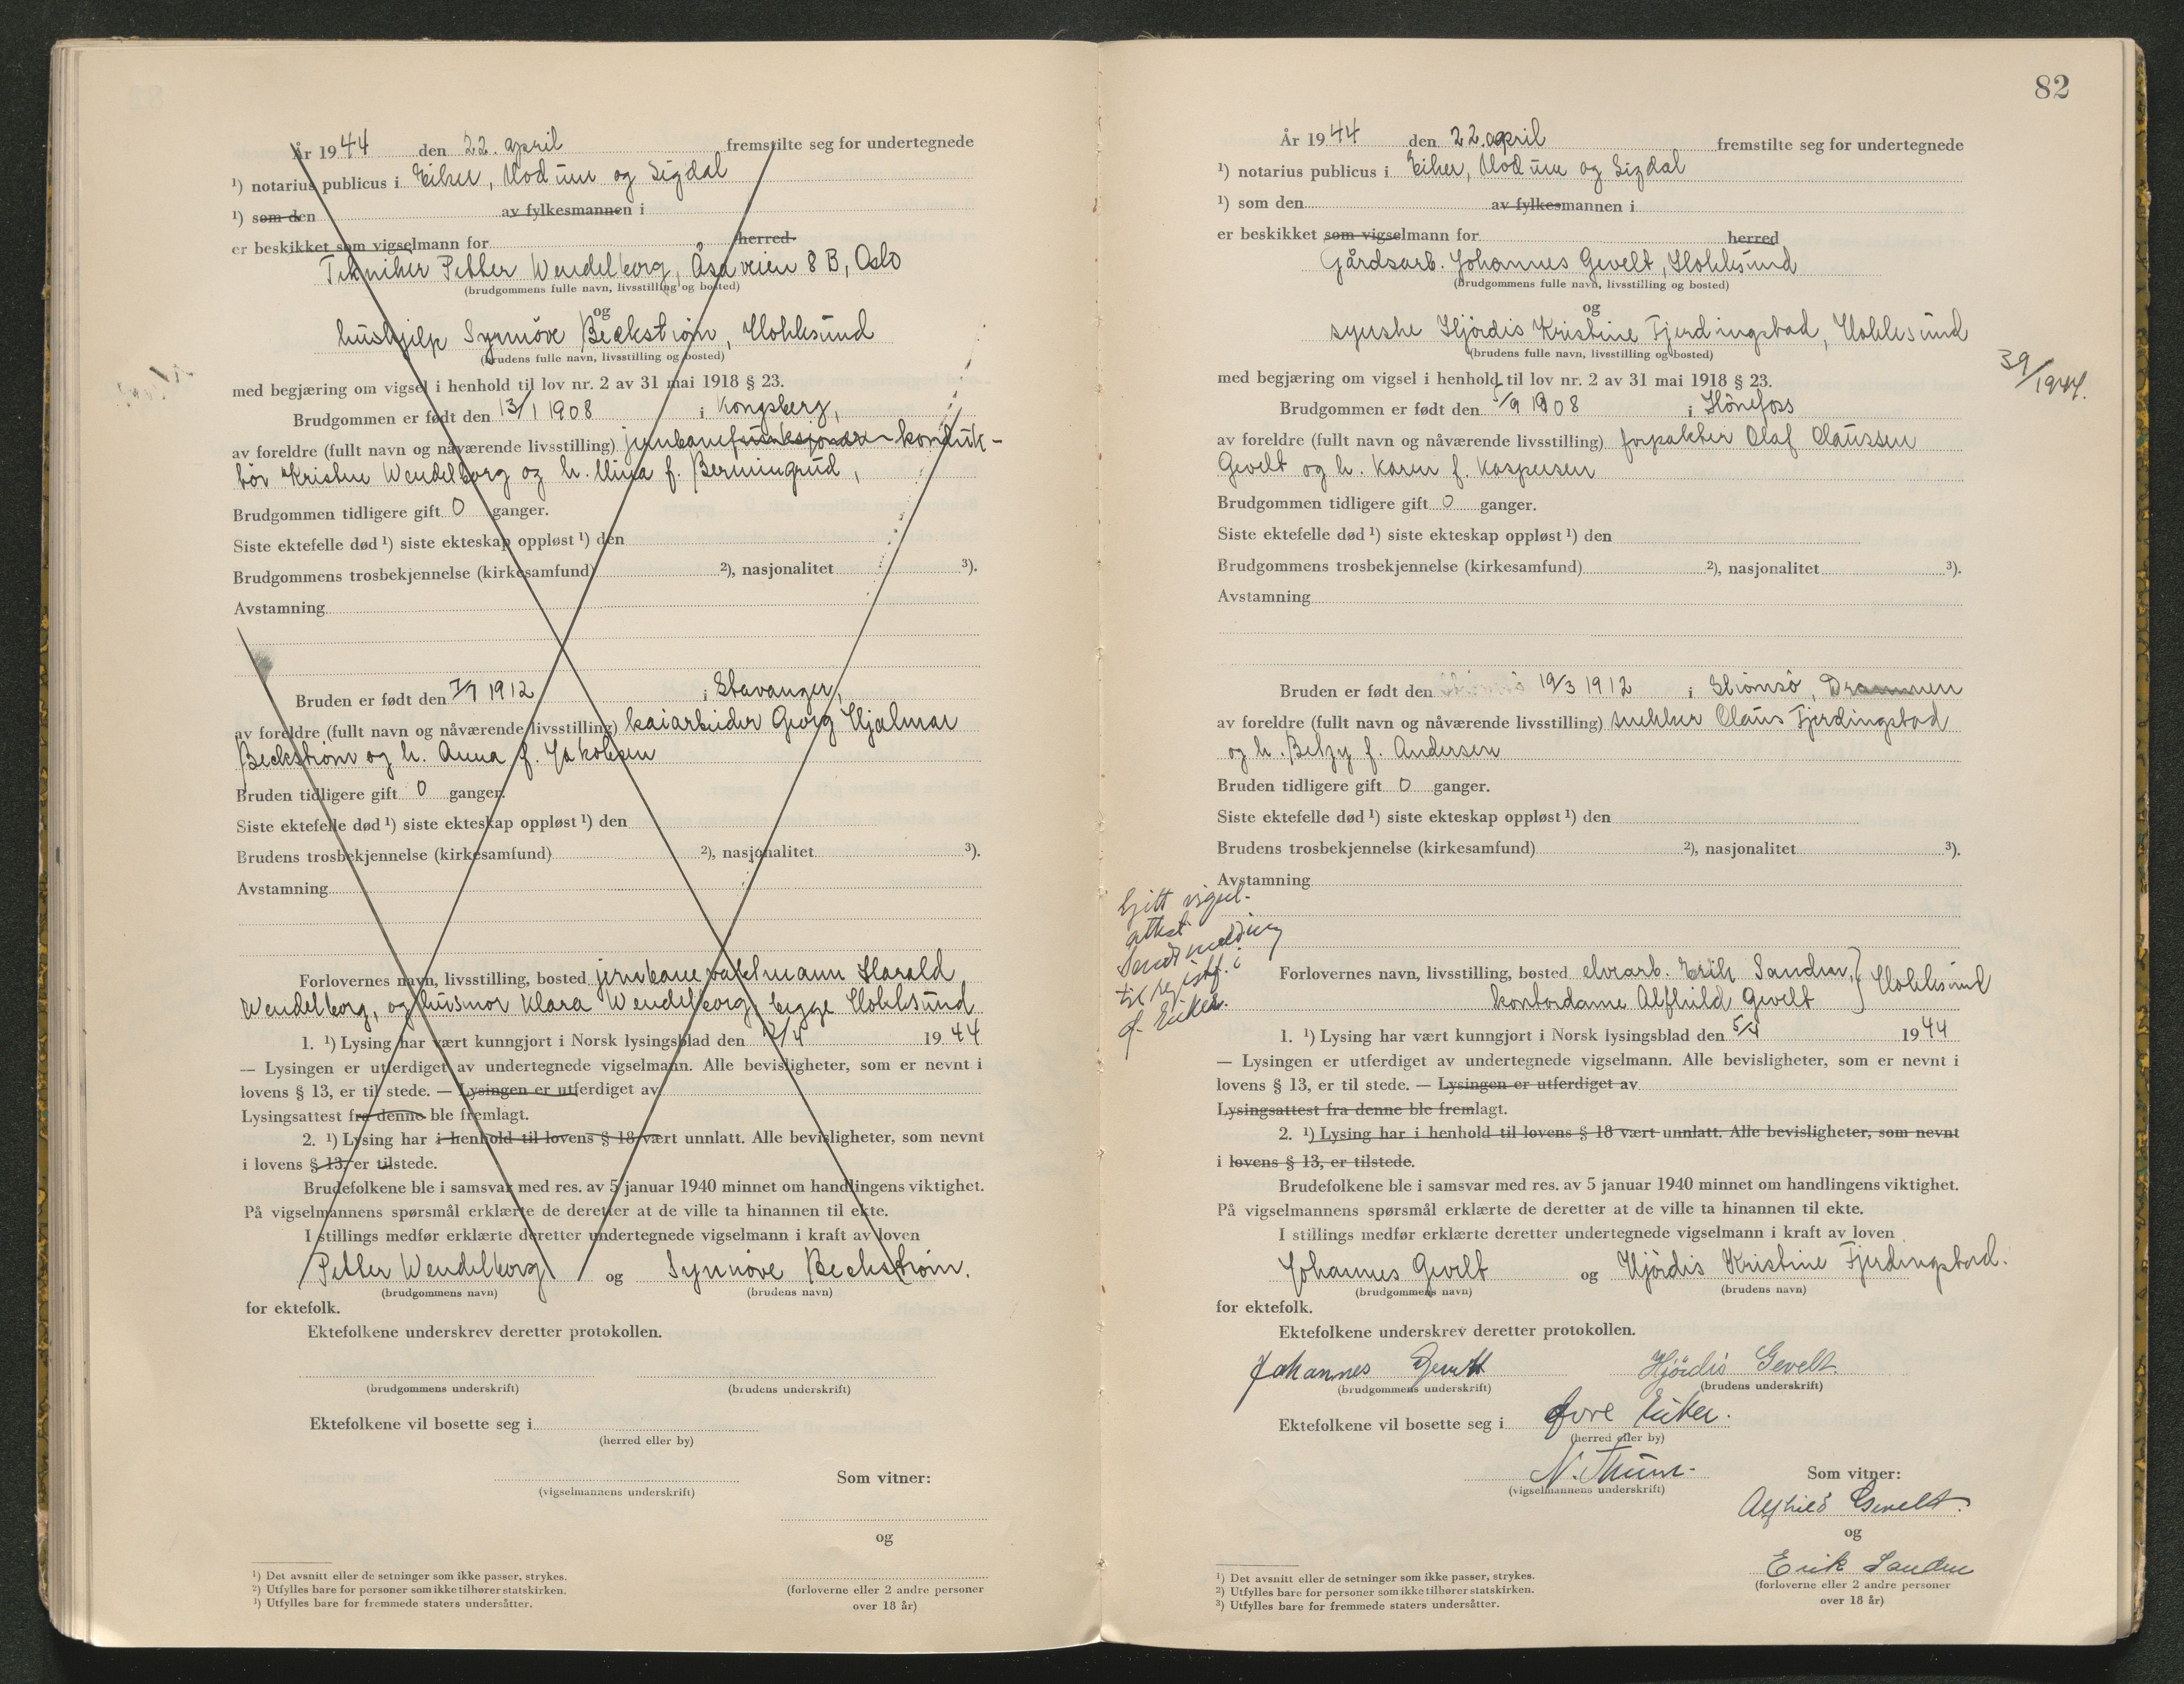 År 1944 den 22. april fremstilte seg for undertegnede
¹) notarius publicus i Eiker, Modum og Sigdal
¹) som den av fylkesmannen i
er beskikket som vigselmann for herred
Tekniker Petter Wendelborg, Åsaveien 8 B, Oslo
(brudgommens fulle navn, livsstilling og bosted)
og
hushjelp Synnöve Beckström, Hokksund
(brudens fulle navn, livsstilling og bosted)
med begjæring om vigsel i henhold til lov nr. 2 av 31 mai 1918 § 23.
Brudgommen er født den 13/1 1908 i Kongsberg,
av foreldre (fullt navn og nåværende livsstilling) jernbanefunksjonær konduk-
tör Kristian Wendelborg og h. f.
Brudgommen tidligere gift 0 ganger.
Siste ektefelle død ¹) siste ekteskap oppløst ¹) den
Brudgommens trosbekjennelse (kirkesamfund) ²), nasjonalitet ³).
Avstamning
Bruden er født den 7/7 1912 i Stavanger,
av foreldre (fullt navn og nåværende livsstilling) kaiarbeider Georg Hjalmar
Beckström og h. Anna f. Jakobsen
Bruden tidligere gift 0 ganger.
Siste ektefelle død ¹) siste ekteskap oppløst ¹) den
Brudens trosbekjennelse (kirkesamfund) ²), nasjonalitet ³).
Avstamning
Forlovernes navn, livsstilling, bosted jernbanevaktmann Harald
Wendelborg, og husmor Klara Wendelborg, begge Hokksund
1. ¹) Lysing har vært kunngjort i Norsk lysingsblad den /4 1944
— Lysingen er utferdiget av undertegnede vigselmann. Alle bevisligheter, som er nevnt i
lovens § 13, er til stede. — Lysingen er utferdiget av
Lysingsattest fra denne ble fremlagt.
2. ¹) Lysing har i henhold til lovens § 18 vært unnlatt. Alle bevisligheter, som nevnt
i lovens § 13, er tilstede.
Brudefolkene ble i samsvar med res. av 5 januar 1940 minnet om handlingens viktighet.
På vigselmannens spørsmål erklærte de deretter at de ville ta hinannen til ekte.
I stillings medfør erklærte deretter undertegnede vigselmann i kraft av loven
Petter Wendelborg og Synnöve Beckström.
(brudgommens navn) (brudens navn)
for ektefolk.
Ektefolkene underskrev deretter protokollen.
(brudgommens underskrift) (brudens underskrift)
Ektefolkene vil bosette seg i
(herred eller by)
Som vitner:
(vigselmannens underskrift)
og
¹) Det avsnitt eller de setninger som ikke passer, strykes.
²) Utfylles bare for personer som ikke tilhører statskirken.
³) Utfylles bare for fremmede staters undersåtter.
(forloverne eller 2 andre personer
over 18 år)
82
År 1944 den 22. april fremstilte seg for undertegnede
¹) notarius publicus i Eiker, Modum og Sigdal
¹) som den av fylkesmannen i
er beskikket som vigselmann for herred
Gårdsarb. Johannes Gevelt, Hokksund
(brudgommens fulle navn, livsstilling og bosted)
og
syerske Hjördis Kristine Fjerdingstad, Hokksund
(brudens fulle navn, livsstilling og bosted)
39/1944.
med begjæring om vigsel i henhold til lov nr. 2 av 31 mai 1918 § 23.
Brudgommen er født den /9 1908 i Hönefoss
av foreldre (fullt navn og nåværende livsstilling) forpakter Olaf Claussen
Gevelt og h. Karen f. Kaspersen
Brudgommen tidligere gift 0 ganger.
Siste ektefelle død ¹) siste ekteskap oppløst ¹) den
Brudgommens trosbekjennelse (kirkesamfund) ²), nasjonalitet ³).
Avstamning
Bruden er født den 19/3 1912 i Strömsö, Drammen
av foreldre (fullt navn og nåværende livsstilling) snekker Claus Fjerdingstad
og h. Betzy f. Andersen
Bruden tidligere gift 0 ganger.
Siste ektefelle død ¹) siste ekteskap oppløst ¹) den
Brudens trosbekjennelse (kirkesamfund) ²), nasjonalitet ³).
Avstamning
Gitt vigsel-
attest
Sendt melding
til regist.f. i
Ø. Eiker.
Forlovernes navn, livsstilling, bosted elvearb. Erik Sanden, } Hokksund
kontordame Alfhild Gevelt
1. ¹) Lysing har vært kunngjort i Norsk lysingsblad den 5/4 1944
— Lysingen er utferdiget av undertegnede vigselmann. Alle bevisligheter, som er nevnt i
lovens § 13, er til stede. — Lysingen er utferdiget av
Lysingsattest fra denne ble fremlagt.
2. ¹) Lysing har i henhold til lovens § 18 vært unnlatt. Alle bevisligheter, som nevnt
i lovens § 13, er tilstede.
Brudefolkene ble i samsvar med res. av 5 januar 1940 minnet om handlingens viktighet.
På vigselmannens spørsmål erklærte de deretter at de ville ta hinannen til ekte.
I stillings medfør erklærte deretter undertegnede vigselmann i kraft av loven
Johannes Gevelt og Hjördis Kristine Fjerdingstad.
(brudgommens navn) (brudens navn)
for ektefolk.
Ektefolkene underskrev deretter protokollen.
Johannes Gevelt Hjördis Gevelt.
(brudgommens underskrift) (brudens underskrift)
Ektefolkene vil bosette seg i Øvre Eiker.
(herred eller by)
N. Thum.
(vigselmannens underskrift)
Som vitner:
Alfhild Gevelt.
og
Erik Sanden
(forloverne eller 2 andre personer
over 18 år)
¹) Det avsnitt eller de setninger som ikke passer, strykes.
²) Utfylles bare for personer som ikke tilhører statskirken.
³) Utfylles bare for fremmede staters undersåtter.